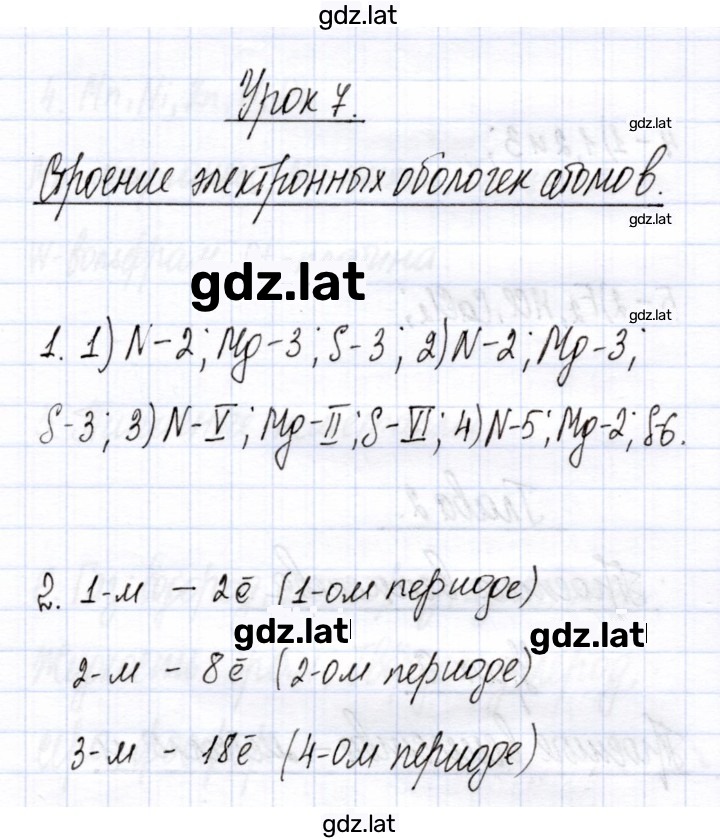 gdz.lat
Урок 7.
gdz.lat
Строение электронных оболочек атомов.
gdz.lat
gdz.lat
gdz.lat
1. 1) N-2; Mg-3; S-3; 2) N-2; Mg-3;
S-3; 3) N-V; Mg-II; S-VI; 4) N-5; Mg-2; S6.
2. 1-м - 2ē (1-ом периоде)
gdz.lat gdz.lat
2-м - 8ē (2-ом периоде)
3-м - 18ē (4-ом периоде)
gdz.lat